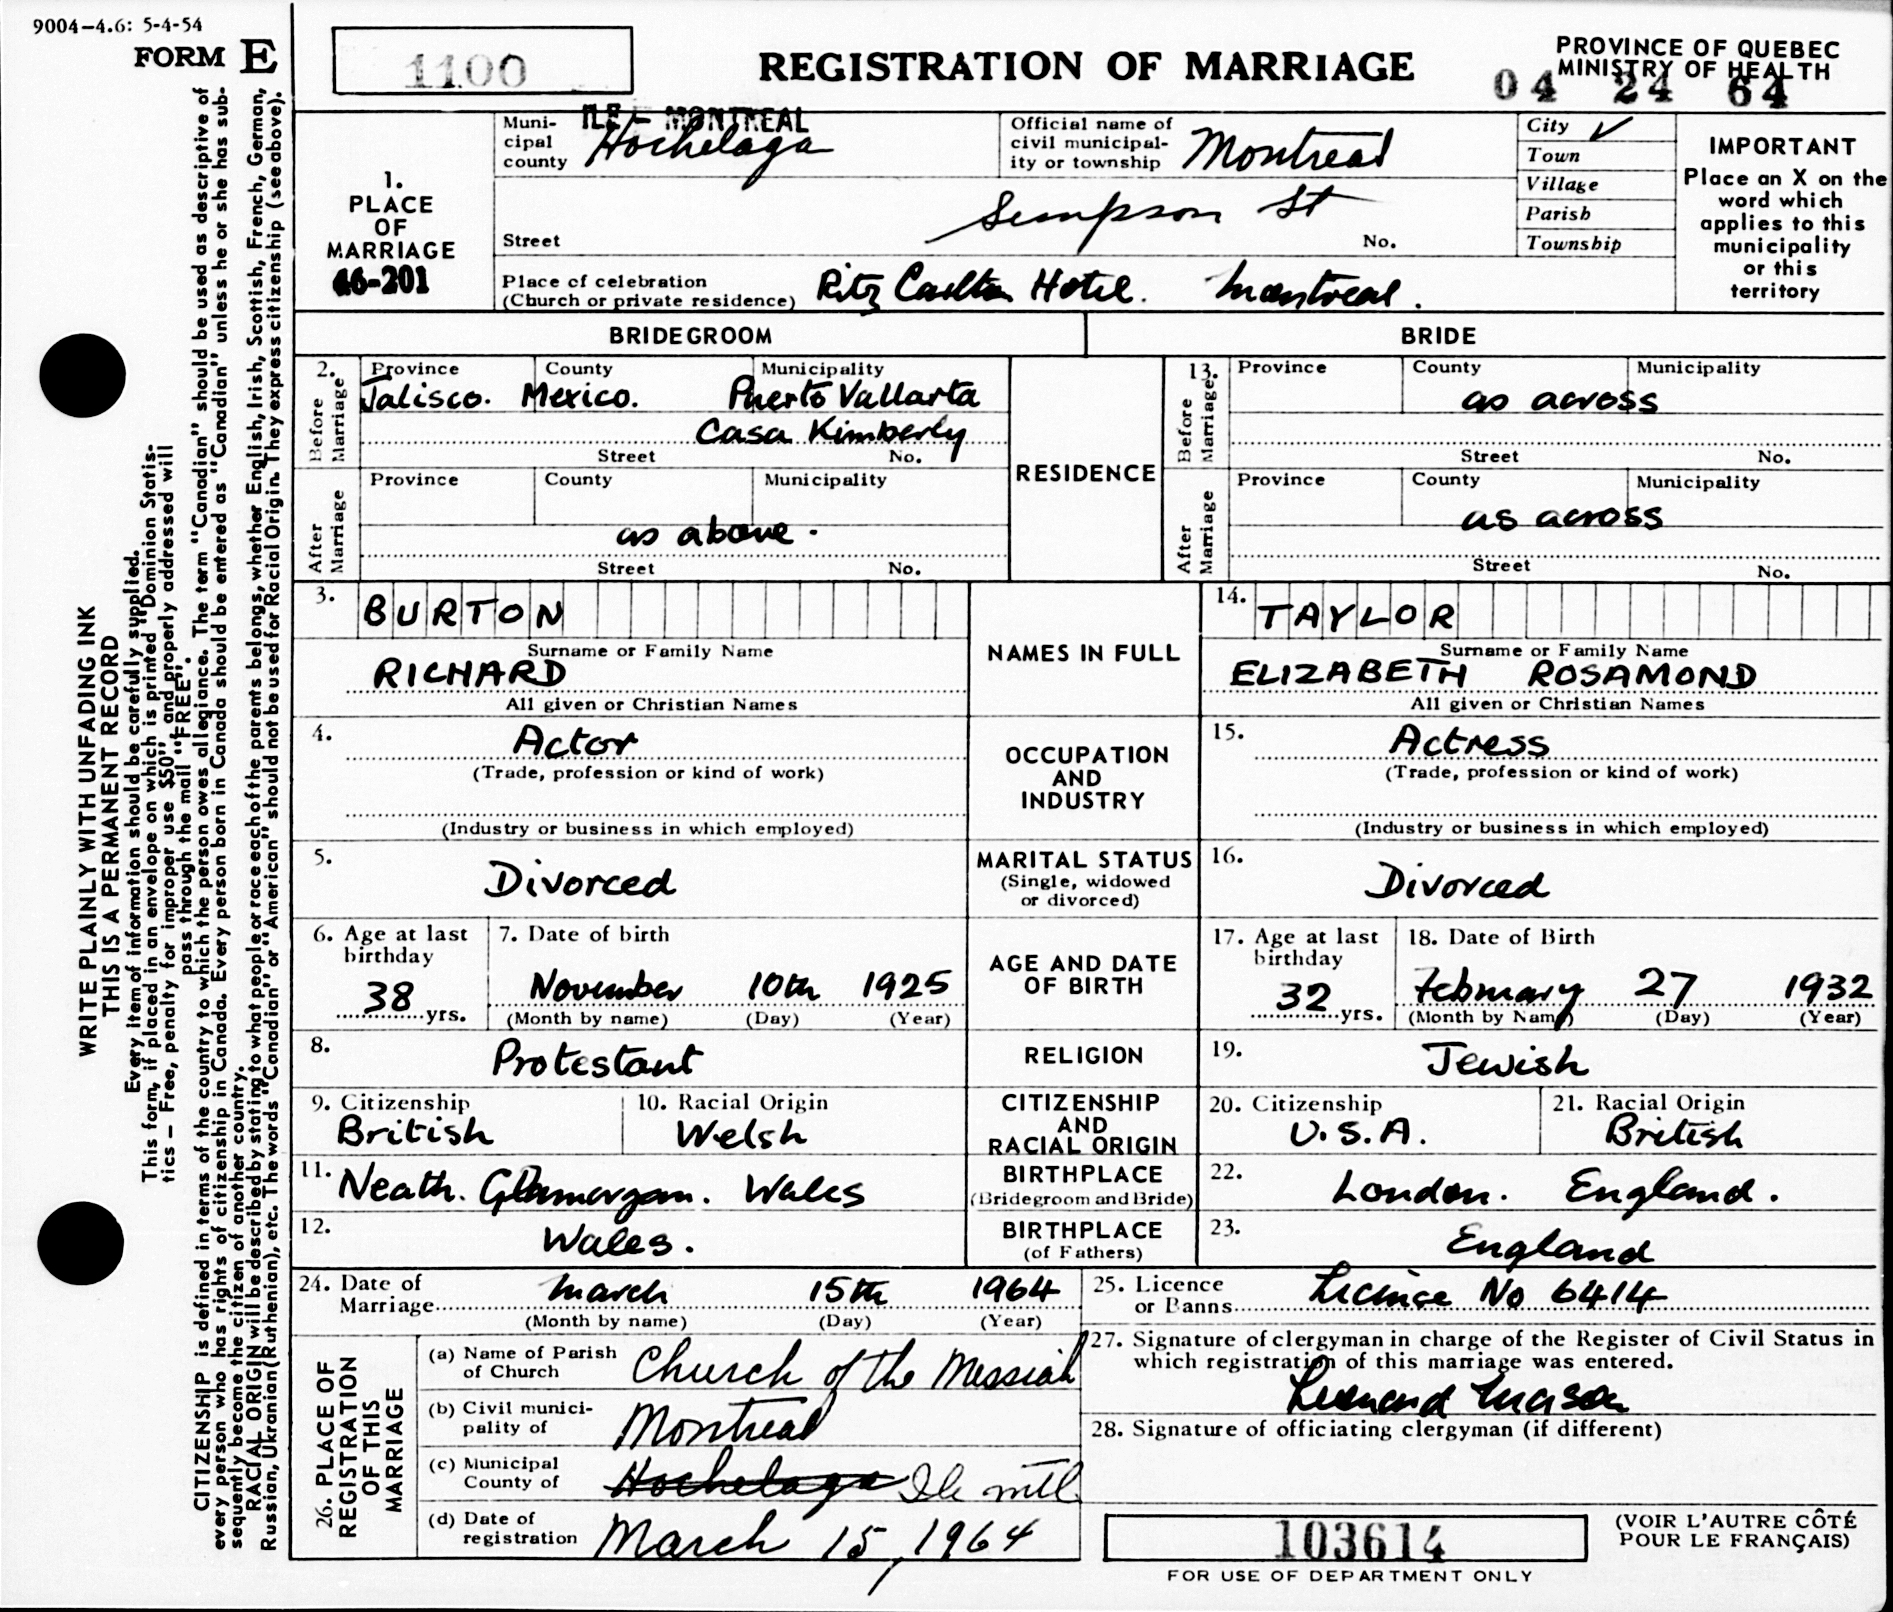 9004-4.6: 5-4-54
FORM E
1100
REGISTRATION OF MARRIAGE
PROVINCE OF QUEBEC
MINISTRY OF HEALTH
04 24 64
1.
PLACE
OF
MARRIAGE
46-201
Muni-
cipal
county
ILE - MONTREAL
Hochelaga
Official name of
civil municipal-
ity or township
Montreal
City ✓
Town
Village
Parish
Township
IMPORTANT
Place an X on the
word which
applies to this
municipality
or this
territory
Simpson St
Street No.
Place of celebration
(Church or private residence)
Ritz Carlton Hotel. Montreal.
BRIDEGROOM
BRIDE
2.
Before
Marriage
Province County Municipality
Jalisco. Mexico. Puerto Vallarta
Casa Kimberly
Street No.
After
Marriage
Province County Municipality
as above.
Street No.
RESIDENCE
13.
Before
Marriage
Province County Municipality
as across
Street No.
After
Marriage
Province County Municipality
as across
Street No.
3.
BURTON
Surname or Family Name
RICHARD
All given or Christian Names
NAMES IN FULL
14.
TAYLOR
Surname or Family Name
ELIZABETH ROSAMOND
All given or Christian Names
4.
Actor
(Trade, profession or kind of work)
(Industry or business in which employed)
OCCUPATION
AND
INDUSTRY
15.
Actress
(Trade, profession or kind of work)
(Industry or business in which employed)
5.
Divorced
MARITAL STATUS
(Single, widowed
or divorced)
16.
Divorced
6. Age at last
birthday
38 yrs.
7. Date of birth
November 10th 1925
(Month by name) (Day) (Year)
AGE AND DATE
OF BIRTH
17. Age at last
birthday
32 yrs.
18. Date of Birth
February 27 1932
(Month by Name) (Day) (Year)
8.
Protestant
RELIGION
19.
Jewish
9. Citizenship
British
10. Racial Origin
Welsh
CITIZENSHIP
AND
RACIAL ORIGIN
20. Citizenship
U.S.A.
21. Racial Origin
British
11. Neath. Glamorgan. Wales
BIRTHPLACE
(Bridegroom and Bride)
22.
London. England.
12.
Wales.
BIRTHPLACE
(of Fathers)
23.
England
24. Date of
Marriage
March 15th 1964
(Month by name) (Day) (Year)
25. Licence
or Banns
Licence No 6414
26. PLACE OF
REGISTRATION
OF THIS
MARRIAGE
(a) Name of Parish
of Church
Church of the Messiah
(b) Civil munici-
pality of
Montreal
(c) Municipal
County of
Hochelaga Ile mtl
(d) Date of
registration
March 15, 1964
27. Signature of clergyman in charge of the Register of Civil Status in
which registration of this marriage was entered.
Leonard Mason
28. Signature of officiating clergyman (if different)
103614
FOR USE OF DEPARTMENT ONLY
(VOIR L'AUTRE CÔTÉ
POUR LE FRANÇAIS)
WRITE PLAINLY WITH UNFADING INK
THIS IS A PERMANENT RECORD
Every item of information should be carefully supplied.
This form, if placed in an envelope on which is printed "Dominion Statis-
tics — Free, penalty for improper use $50", and properly addressed will
pass through the mail "FREE".
CITIZENSHIP is defined in terms of the country to which the person owes allegiance. The term "Canadian" should be used as descriptive of
every person who has rights of citizenship in Canada. Every person born in Canada should be entered as "Canadian" unless he or she has sub-
sequently become the citizen of another country.
RACIAL ORIGIN will be described by stating to what people or race each of the parents belongs, whether English, Irish, Scottish, French, German,
Russian, Ukranian (Ruthenian), etc. The words "Canadian" or "American" should not be used for Racial Origin. They express citizenship (see above).